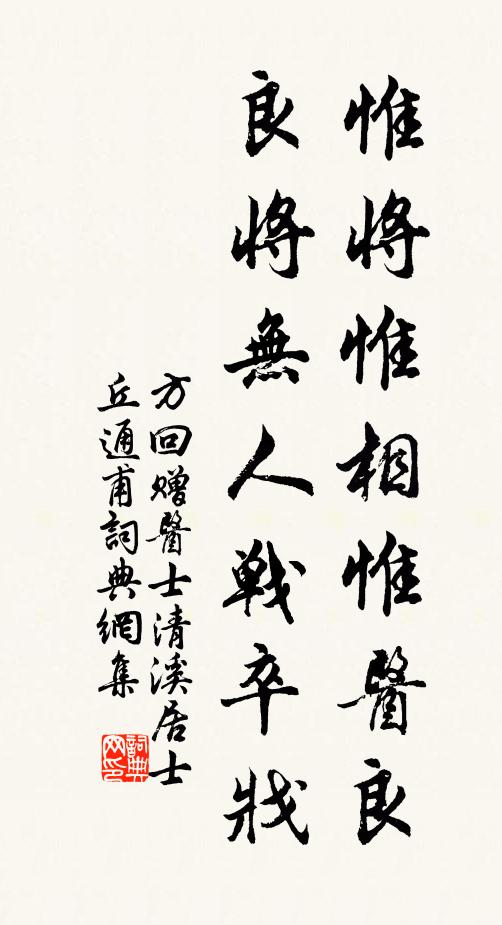 惟將惟相惟醫良
良將無人戰卒戕
方回贈醫士清溪居士
丘通甫詞典網集
詞典網印